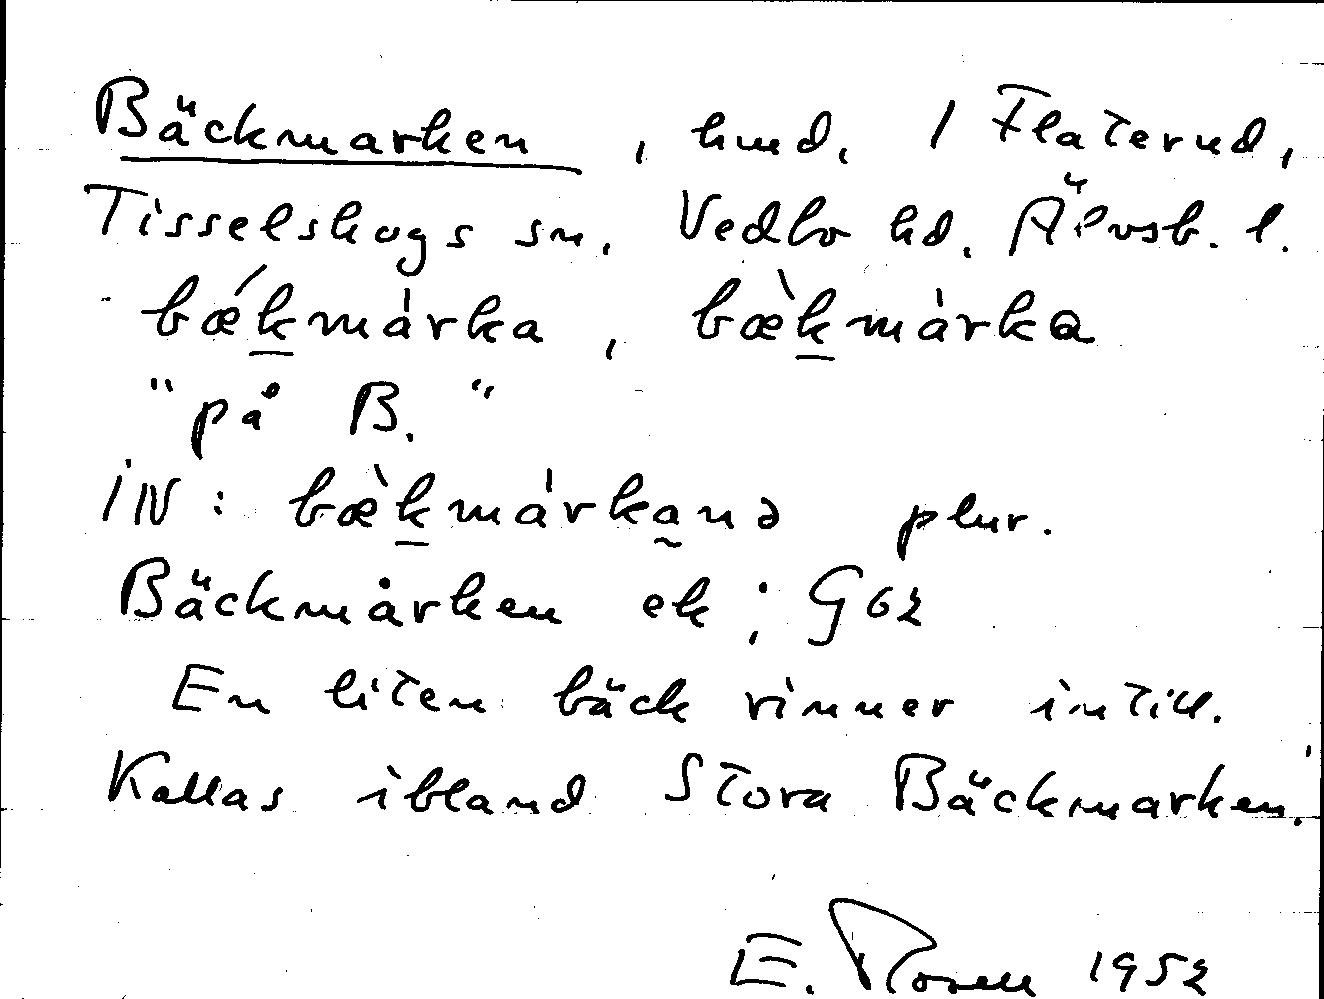 Bäckmarken, hmd. 1 Flaterud,
Tisselskogs sn. Vedbo hd. Älvsb. l.
bǽk̲màrka, bæ̀k̲màrka
"på B."
IN: bæ̀k̲márka̰nə plur.
Bäckmarken ek; G62
En liten bäck rinner intill.
Kallas ibland Stora Bäckmarken.
E. Rosell 1952